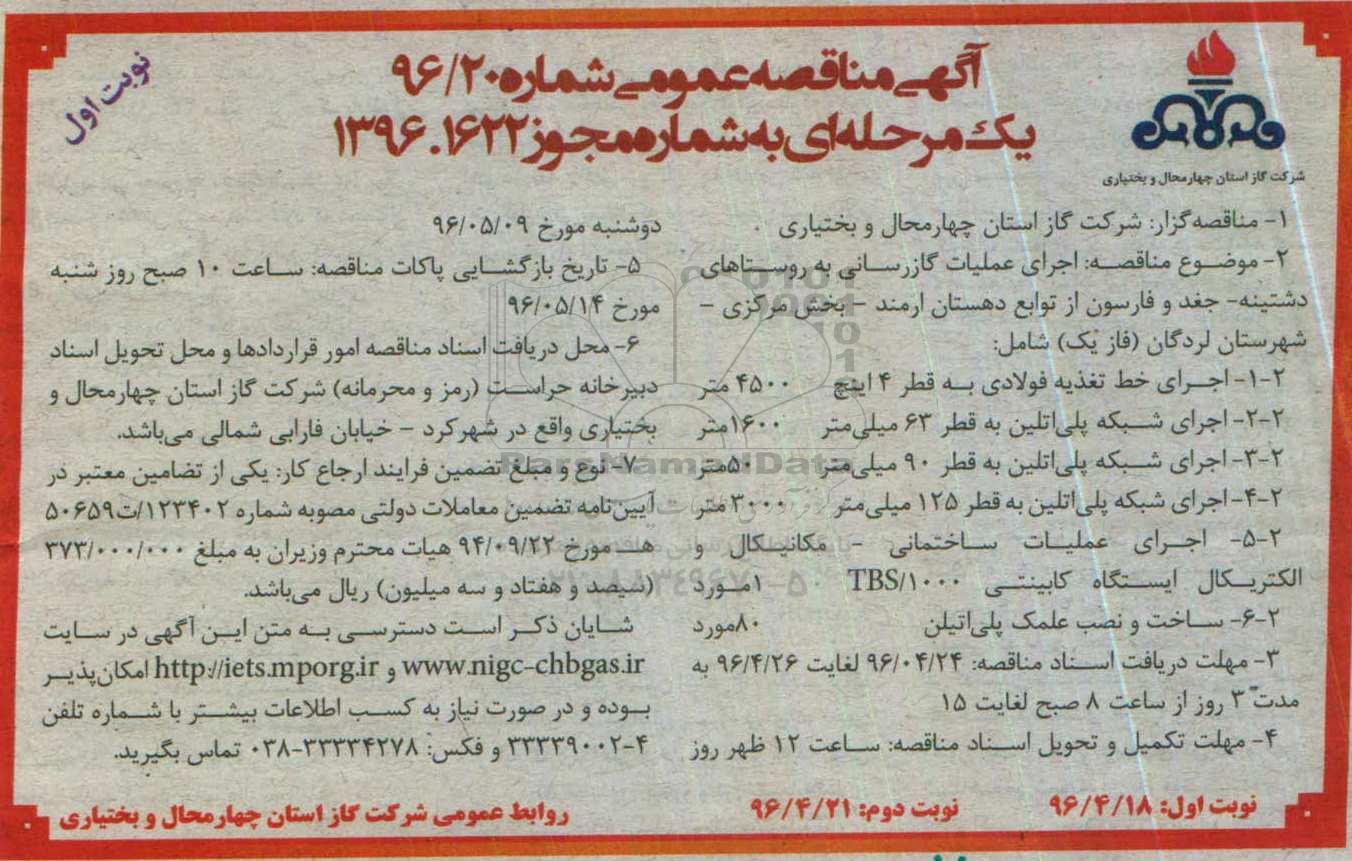 نوبت اول
آگهی مناقصه عمومی شماره ۹۶/۲۰
یک مرحله‌ای به شماره مجوز ۱۳۹۶.۱۶۲۲
شرکت گاز استان چهارمحال و بختیاری
۱- مناقصه‌گزار: شرکت گاز استان چهارمحال و بختیاری
۲- موضوع مناقصه: اجرای عملیات گازرسانی به روستاهای
دشتینه- جغد و فارسون از توابع دهستان ارمند – بخش مرکزی –
شهرستان لردگان (فاز یک) شامل:
۲-۱- اجرای خط تغذیه فولادی به قطر ۴ اینچ ۴۵۰۰ متر
۲-۲- اجرای شبکه پلی‌اتلین به قطر ۶۳ میلی‌متر ۱۶۰۰۰متر
۲-۳- اجرای شبکه پلی‌اتلین به قطر ۹۰ میلی‌متر ۵۰متر
۲-۴- اجرای شبکه پلی‌اتلین به قطر ۱۲۵ میلی‌متر ۳۰۰۰ متر
۲-۵- اجرای عملیات ساختمانی - مکانیکال و
الکتریکال ایستگاه کابینتی TBS/۱۰۰۰ ۱مورد
۲-۶- ساخت و نصب علمک پلی‌اتیلن ۸۰مورد
۳- مهلت دریافت اسناد مناقصه: ۹۶/۰۴/۲۴ لغایت ۹۶/۴/۲۶ به
مدت ۳ روز از ساعت ۸ صبح لغایت ۱۵
۴- مهلت تکمیل و تحویل اسناد مناقصه: ساعت ۱۲ ظهر روز
دوشنبه مورخ ۹۶/۰۵/۰۹
۵- تاریخ بازگشایی پاکات مناقصه: ساعت ۱۰ صبح روز شنبه
مورخ ۹۶/۰۵/۱۴
۶- محل دریافت اسناد مناقصه امور قراردادها و محل تحویل اسناد
دبیرخانه حراست (رمز و محرمانه) شرکت گاز استان چهارمحال و
بختیاری واقع در شهرکرد – خیابان فارابی شمالی می‌باشد.
۷- نوع و مبلغ تضمین فرایند ارجاع کار: یکی از تضامین معتبر در
آیین‌نامه تضمین معاملات دولتی مصوبه شماره ۱۲۳۴۰۲/ت۵۰۶۵۹
هـ مورخ ۹۴/۰۹/۲۲ هیات محترم وزیران به مبلغ ۳۷۳/۰۰۰/۰۰۰
(سیصد و هفتاد و سه میلیون) ریال می‌باشد.
شایان ذکر است دسترسی به متن این آگهی در سایت
www.nigc-chbgas.ir و http://iets.mporg.ir امکان‌پذیر
بوده و در صورت نیاز به کسب اطلاعات بیشتر با شماره تلفن
۳۳۳۳۹۰۰۲-۴ و فکس: ۳۳۳۳۴۲۷۸-۰۳۸ تماس بگیرید.
نوبت اول: ۹۶/۴/۱۸ نوبت دوم: ۹۶/۴/۲۱
روابط عمومی شرکت گاز استان چهارمحال و بختیاری
ParsNamadData